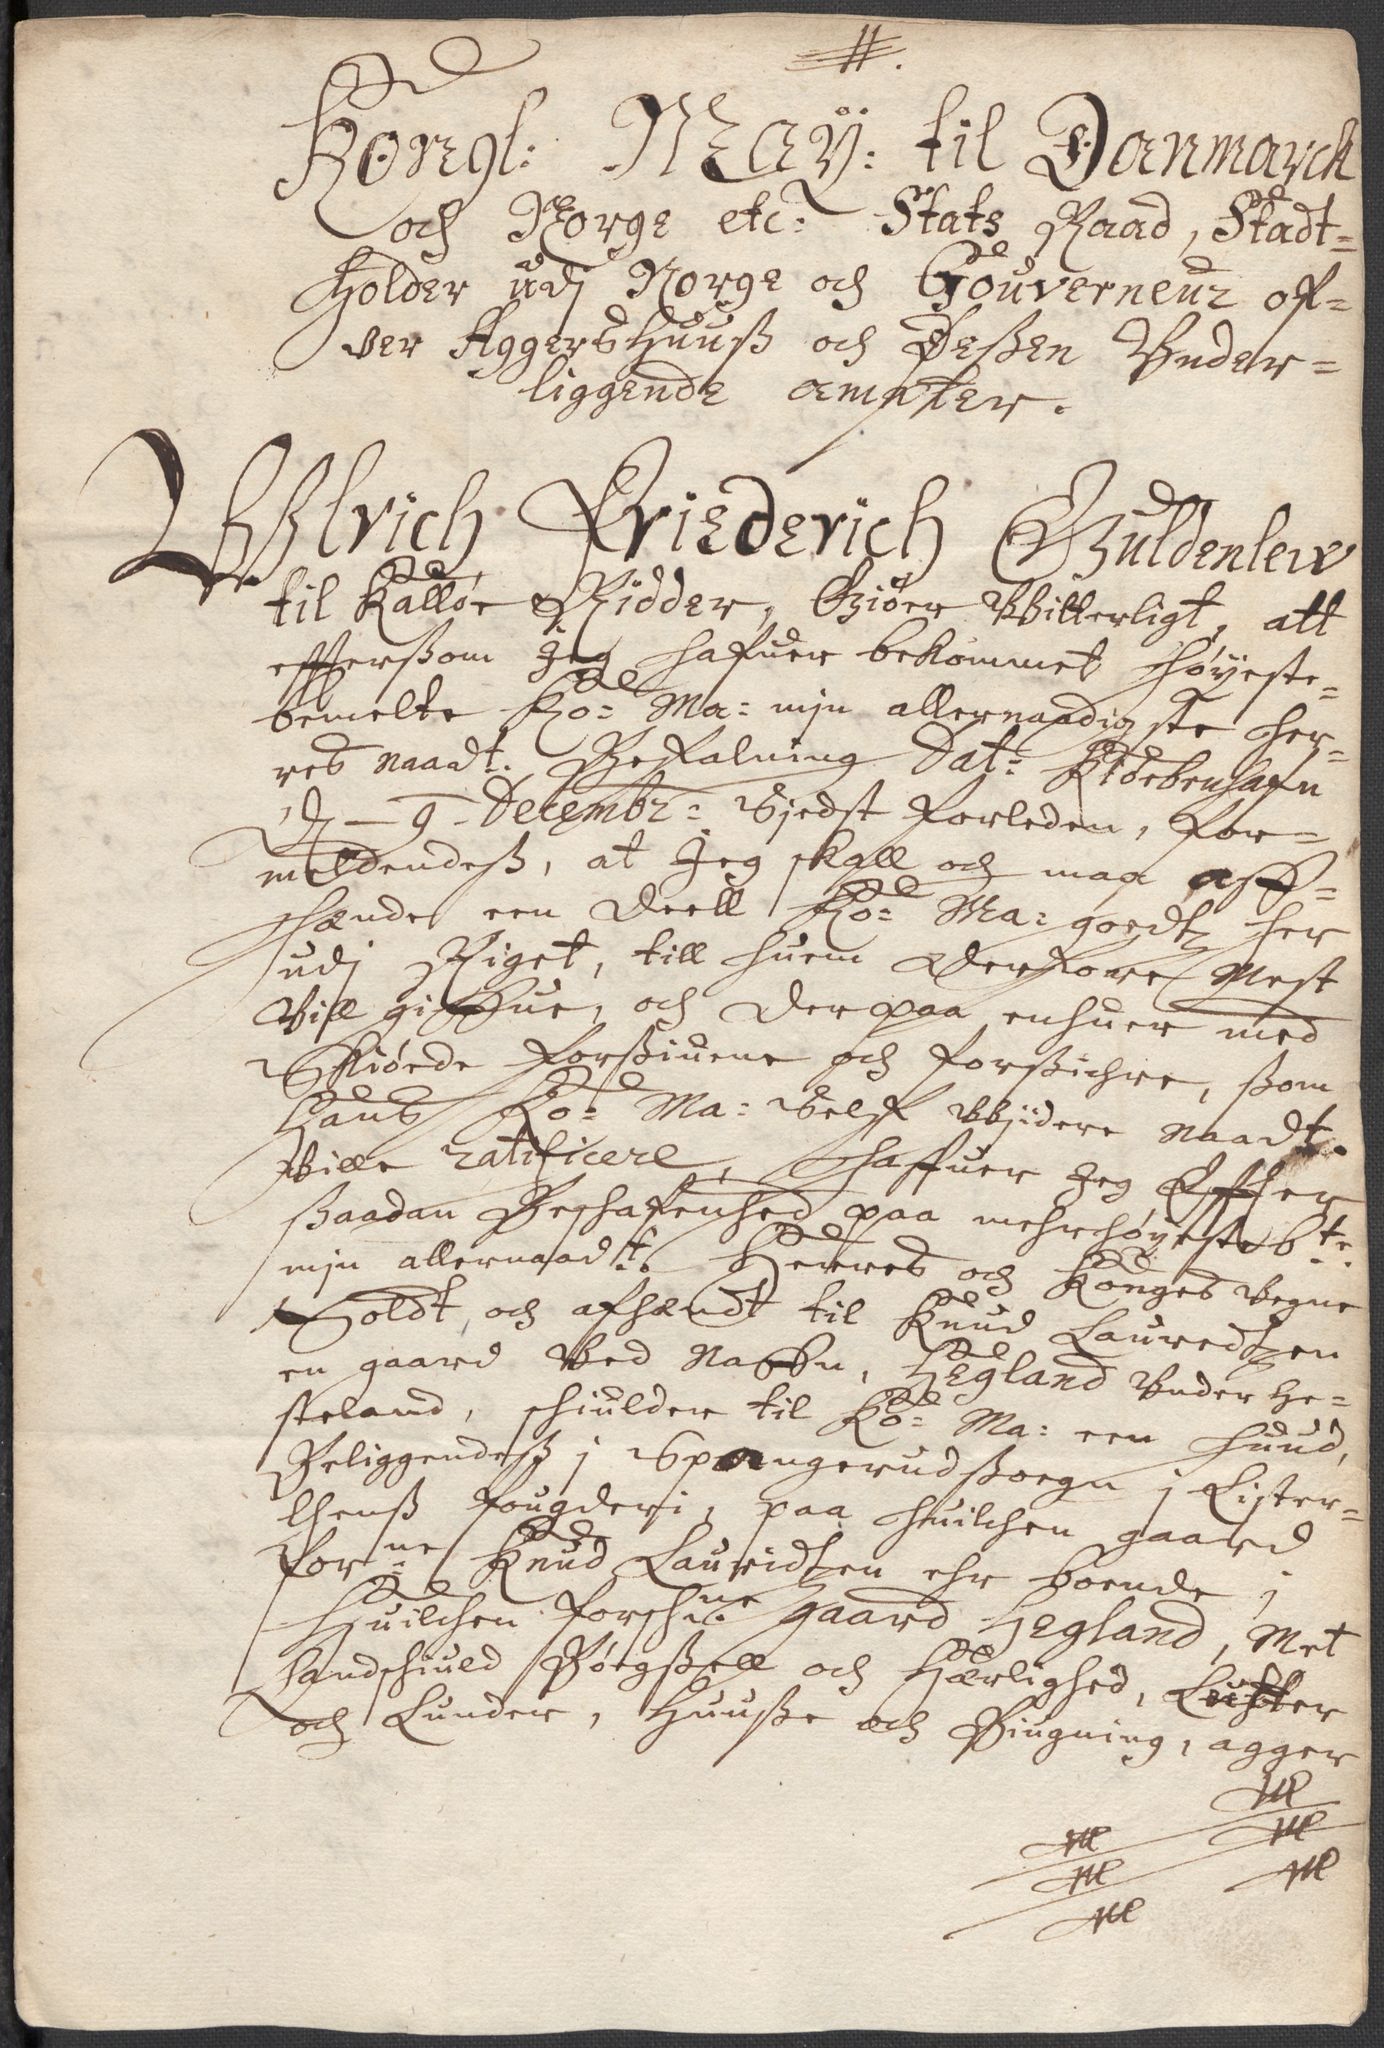 #.
Kongl: May: til Danmarck
och Norge etc: Stats Raad, Stadt=
holder udj Norge och Gouverneur of=
ver Aggershuuß och Deßen Vnder=
liggende ampter.
Wlrich Friederich Guldenlew
til Kalløe Ridder, Giøer Vitterligt, att
effterßom Jeg hafuer bekommet høyeste=
bemelte Ko: Ma: mjn allernaadigste her=
res naadt: Befalning Dat: Kiøebenhafn
d - 9 - Decembr: Sjedst forleden, for=
meldendeß, at Jeg skall och maa aff=
hænde een Deell Ko: Ma: goedtz her
udj Riget, till huem Derfore Mest
Vill giffue, och Derpaa enhuer med
Skiøede forßiune och forßichre, ßom
Hans Ko: Ma: Self Vjdere naadt.
Ville ratificere, haffuer Jeg Effter
ßaadan Beschafenhed paa mehrhøyestebte:
mjn allernaadt: Herres och Konges Vegne
Soldt, och afhændt til Knud Lauredtzen
en gaard Ved Naffn, Hegland Vnder He=
steland, schiulder til Ko: Ma: een huud,
Beliggendeß j Spangerudßoegn j Lister=
lhenß fougderj, paa huilchen gaard
forne: Knud Lauridtzen ehr boende j
Huilchen forschne: gaard Hegland, Met
Landschiuld Bøegßell och Herlighed, Luster
och Lunder, Huuße och Biugning, agger